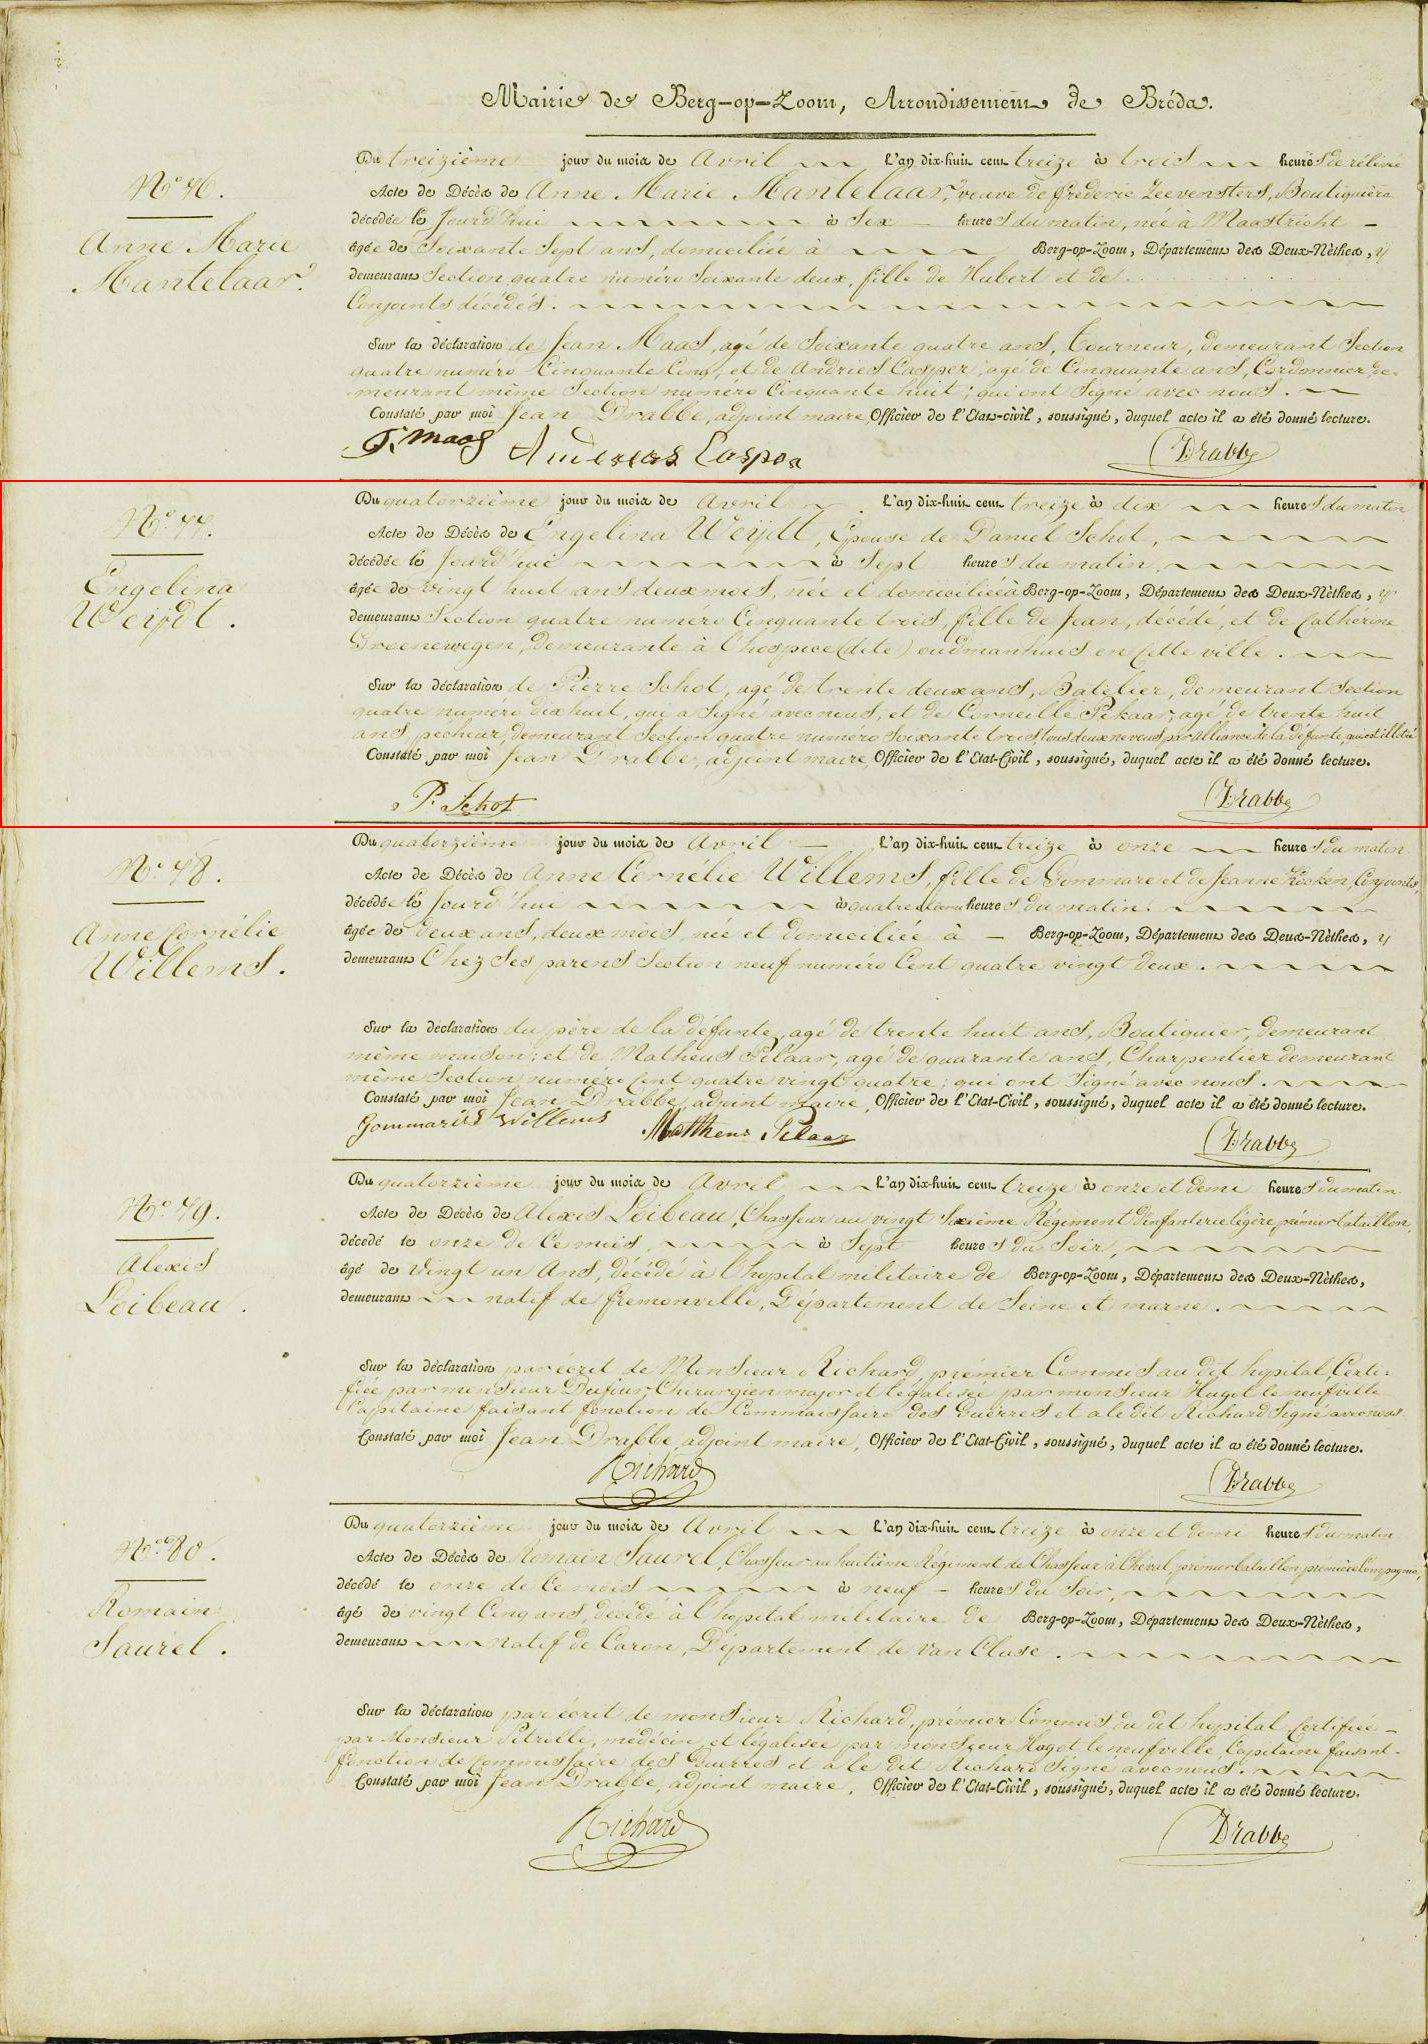 Mairie de Berg-op-Zoom, Arrondissement de Bréda.
N.º 76.
Anne Marie
Mantelaar.
Du treizième jour du mois de Avril L'an dix-huit cent treize à trois heures de rélévée
Acte de Décès de Anne Marie Mantelaar, veuve de fréderic Zeevensters, Boutiquière
décédée le Jourd'hui à Six heures du matin, née à Maastricht –
âgée de Soixante Sept ans, domiciliée à Berg-op-Zoom, Département des Deux-Nèthes, y
demeurant Section quatre numéro Soixante deux, fille de Hubert et de
Conjoints décédés.
Sur la déclaration de Jean Maas, agé de Soixante quatre ans, Tourneur, demeurant Section
quatre numéro Cinquante Cinq, et de Andries Casper, agé de Cinquante ans, Cordonnier, de-
meurant même Section numéro Cinquante huit; qui ont Signé avec nous.
Constaté par moi Jean Drabbe, adjoint maire, Officier de l'Etat-civil, soussigné, duquel acte il a été donné lecture.
J. Maas Andreas Caspar Drabbe
N.º 77.
Engelina
Weÿdt.
Du quatorzième jour du mois de Avril L'an dix-huit cent treize à dix heures du matin
Acte de Décès de Engelina Weÿdt, Epouse de Daniel Schot,
décédée le Jourd'hui à Sept heures du matin,
âgée de vingt huit ans deux mois, née et domiciliée à Berg-op-Zoom, Département des Deux-Nèthes, y
demeurant Section quatre numéro Cinquante trois, fille de Jean, décédé, et de Cathérine
Groenewegen, demeurante à l'hospice (dite) oudmanhuis en Cette ville.
Sur la déclaration de Pierre Schot, agé de trente deux ans, Batelier, demeurant Section
quatre numéro dixhuit, qui a Signé avec nous, et de Corneille Pikaar, agé de trente huit
ans, pecheur, demeurant Section quatre numéro Soixante trois, tous deux neveus par alliance de la défunte, qui est illitéré
Constaté par moi Jean Drabbe, adjoint maire, Officier de l'Etat-Civil, soussigné, duquel acte il a été donné lecture.
P. Schot Drabbe
N.º 78.
Anne Cornélie
Willems.
Du quatorzième jour du mois de Avril – L'an dix-huit cent treize à onze heures du matin
Acte de Décès de Anne Cornélie Willems, fille de Gommare et de Jeanne Kosken, Conjoints,
décédée le Jourd'hui à quatre et demi heures du matin.
âgée de deux ans, deux mois, née et domiciliée à – Berg-op-Zoom, Département des Deux-Nèthes, y
demeurant Chez Ses parens Section neuf numéro Cent quatre vingt deux.
Sur la déclaration du père de la défunte, agé de trente huit ans, Boutiquier, demeurant
même maison; et de Matheus Pilaar, agé de quarante ans, Charpentier demeurant
même Section numéro Cent quatre vingt quatre; qui ont Signé avec nous.
Constaté par moi Jean Drabbe, adjoint maire, Officier de l'Etat-Civil, soussigné, duquel acte il a été donné lecture.
Gommarus Willems Mattheus Pilaar Drabbe
N.º 79.
Alexis
Loibeau.
Du quatorzième jour du mois de Avril L'an dix-huit cent treize à onze et demi heures du matin
Acte de Décès de Alexis Loibeau, Chasseur au vingt Sixième Régiment d'infanterie légère, prémier bataillon,
décédé le onze de Ce mois à Sept heures du Soir,
âgé de Vingt un Ans, décédé à l'hopital militaire de Berg-op-Zoom, Département des Deux-Nèthes,
demeurant natif de fremonville, Département de Seine et marne.
Sur la déclaration par écrit de Monsieur Richard, prémier Commis au dit hopital, Certi-
fiée par monsieur Dufour, Chirurgien major et légalisée par monsieur Hugot le neufville
Capitaine faisant fonction de Commaissaire des Guerres et a le dit Richard Signé avec nous.
Constaté par moi Jean Drabbe, adjoint maire, Officier de l'Etat-Civil, soussigné, duquel acte il a été donné lecture.
Richard Drabbe
N.º 80.
Romain
Saurel.
Du quatorzième jour du mois de Avril L'an dix-huit cent treize à onze et demi heures du matin
Acte de Décès de Romain Saurel, Chasseur au huitième Régiment de Chasseur à Cheval, prémier bataillon première Compagnie,
décédé le onze de Ce mois à neuf – heures du Soir,
âgé de vingt Cinq ans, décédé à l'hopital militaire de Berg-op-Zoom, Département des Deux-Nèthes,
demeurant natif de Caron, Département de Van Cluse.
Sur la déclaration par écrit de monsieur Richard, prémier Commis du dit hopital, Certifiée –
par Monsieur Pitrolle, médécin, et légalisée par monsieur Hogot le neufville, Capitaine faisant-
fonction de Commissaire des Guerres et a le dit Richard Signé avec nous.
Constaté par moi Jean Drabbe, adjoint maire, Officier de l'Etat-Civil, soussigné, duquel acte il a été donné lecture.
Richard Drabbe